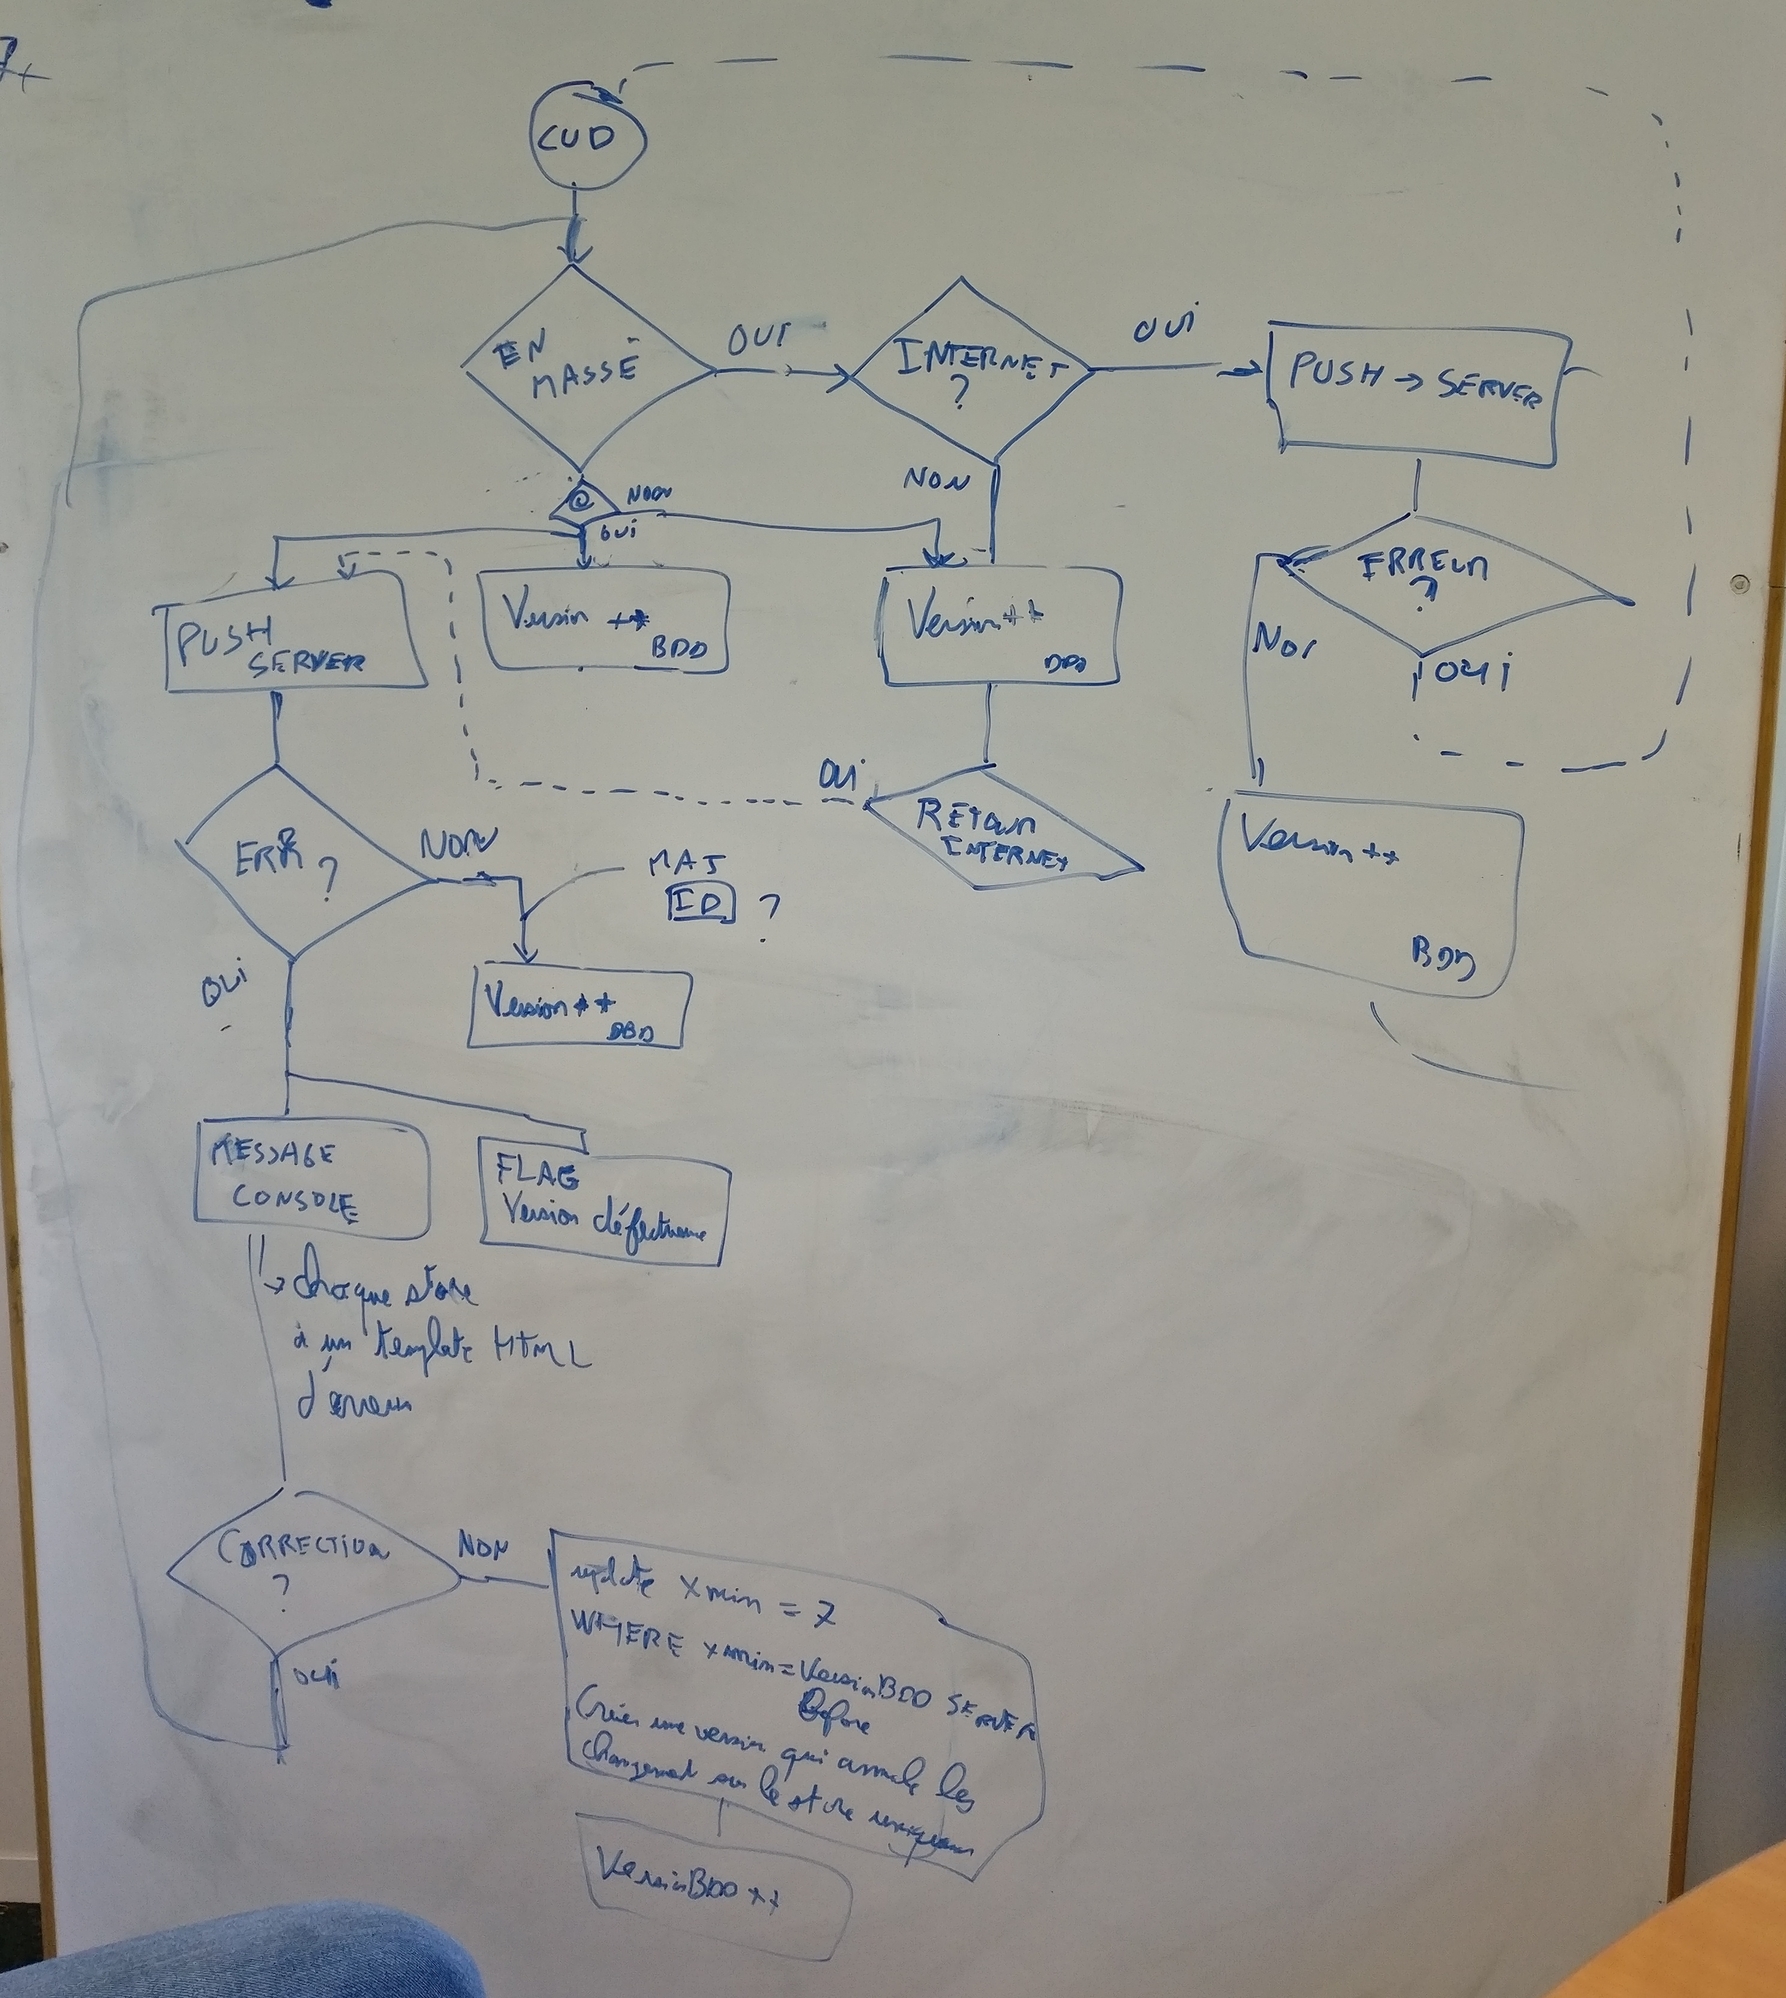 CUD
EN
MASSE
OUI
INTERNET
?
OUI
PUSH → SERVER
NON
OUI
NON
PUSH
SERVER
Version ++
BDD
Version++
ERREUR
?
NON
OUI
OUI
RETOUR
INTERNET
ERR ?
NON
MAJ
ID ?
Version++
BDD
OUI
Version++
MESSAGE
CONSOLE
FLAG
Version défectueuse
→ chaque store
à un template HTML
d'erreur
CORRECTION
?
NON
OUI
update xmin = 7
WHERE xmin = Version BDD SERVER
Before
Créer une version qui annule les
changement sur le store
Version BDD ++